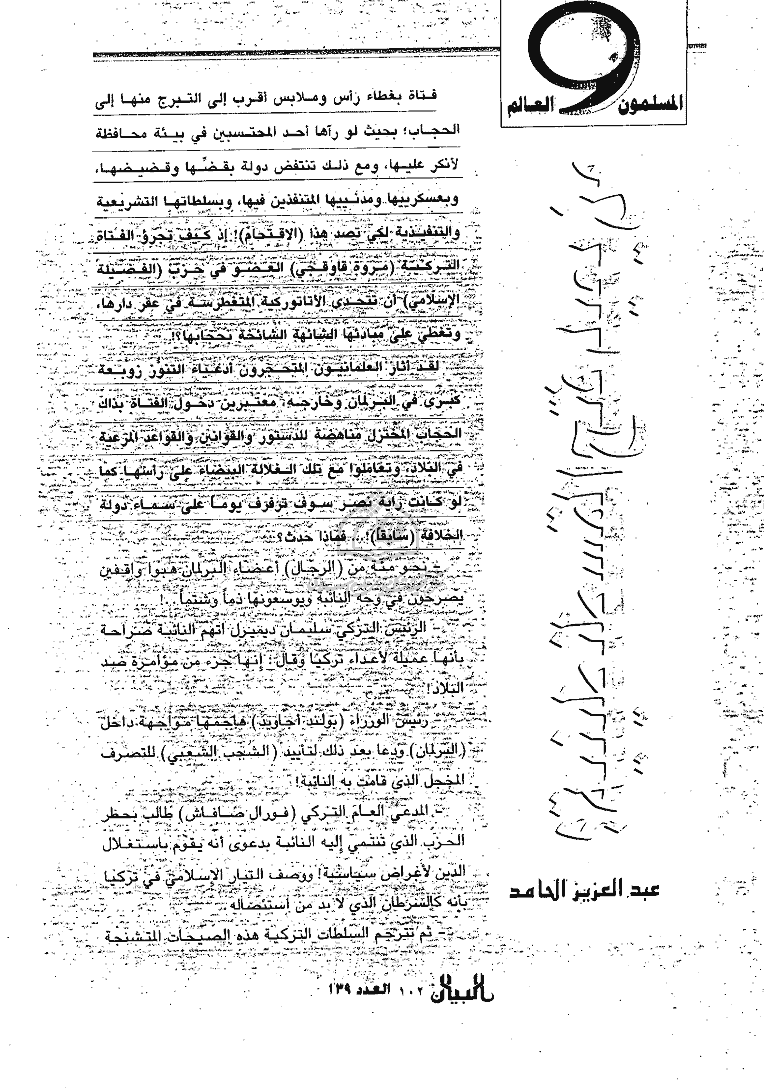 المسلمون و العالم
فتاة بغطاء رأس وملابس أقرب إلى التبرج منها إلى
الحجاب؛ بحيث لو رآها أحد المحتسبين في بيئة محافظة
لأنكر عليها، ومع ذلك تنتفض دولة بقضِّها وقضيضها،
وبعسكرييها ومدنييها المتنفذين فيها، وبسلطاتها التشريعية
والتنفيذية لكي تصد هذا (الاقتحام)! إذ كيف تجرؤ الفتاة
التركية (مروة قاوقجي) العضو في حزب (الفضيلة
الإسلامي) أن تتحدى الأتاتوركية المتغطرسة في عقر دارها،
وتغطي على مبادئها الشائهة الشائخة بحجابها؟!
لقد أثار العلمانيون المتحجرون أدعياء التنوُّر زوبعة
كبرى في البرلمان وخارجه، معتبرين دخول الفتاة بذاك
الحجاب المختزل مناهضة للدستور والقوانين والقواعد المرعية
في البلاد، وتعاملوا مع تلك الغلالة البيضاء على رأسها كما
لو كانت راية نصر سوف ترفرف يوماً على سماء دولة
الخلافة (سابقاً)!... فماذا حدث؟
- نحو مئة من (الرجال) أعضاء البرلمان هبوا واقفين
يصرخون في وجه النائبة ويوسعونها ذماً وشتماً . !
- الرئيس التركي سليمان ديميرل اتهم النائبة صراحة
بأنها عميلة لأعداء تركيا وقال: إنها جزء من مؤامرة ضد
البلاد!
- رئيس الوزراء (بولند أجاويد) هاجمها مواجهة داخل
(البرلمان) ودعا بعد ذلك لتأييد (الشجب الشعبي) للتصرف
المخجل الذي قامت به النائبة!
- المدعي العام التركي (فورال صافاش) طالب بحظر
الحزب الذي تنتمي إليه النائبة بدعوى أنه يقوم باستغلال
الدين لأغراض سياسية! ووصف التيار الإسلامي في تركيا
بأنه كالسرطان الذي لا بد من استئصاله .
- ثم تترجم السلطات التركية هذه الصيحات المتشنجة
عبد العزيز الحامد
البيان ١٠٢ العدد ١٣٩